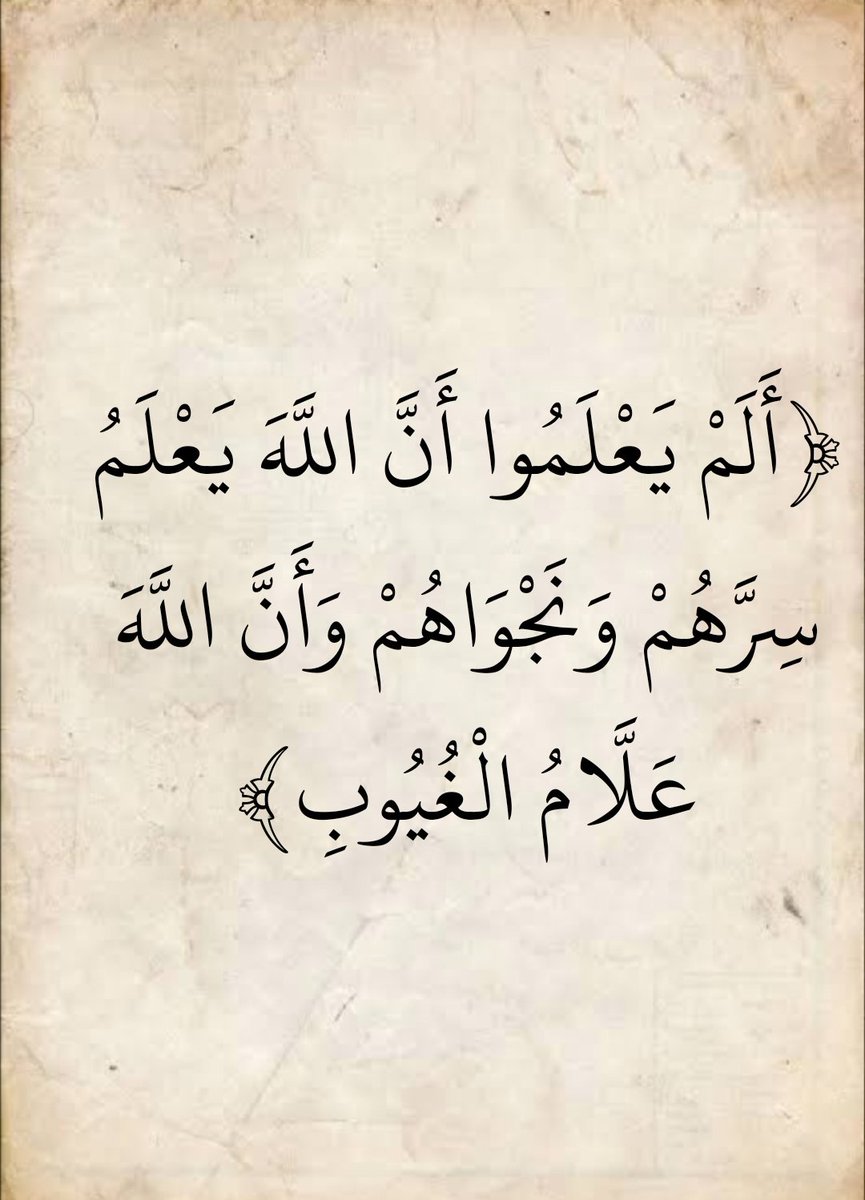 ﴿أَلَمْ يَعْلَمُوا أَنَّ اللَّهَ يَعْلَمُ
سِرَّهُمْ وَنَجْوَاهُمْ وَأَنَّ اللَّهَ
عَلَّامُ الْغُيُوبِ﴾